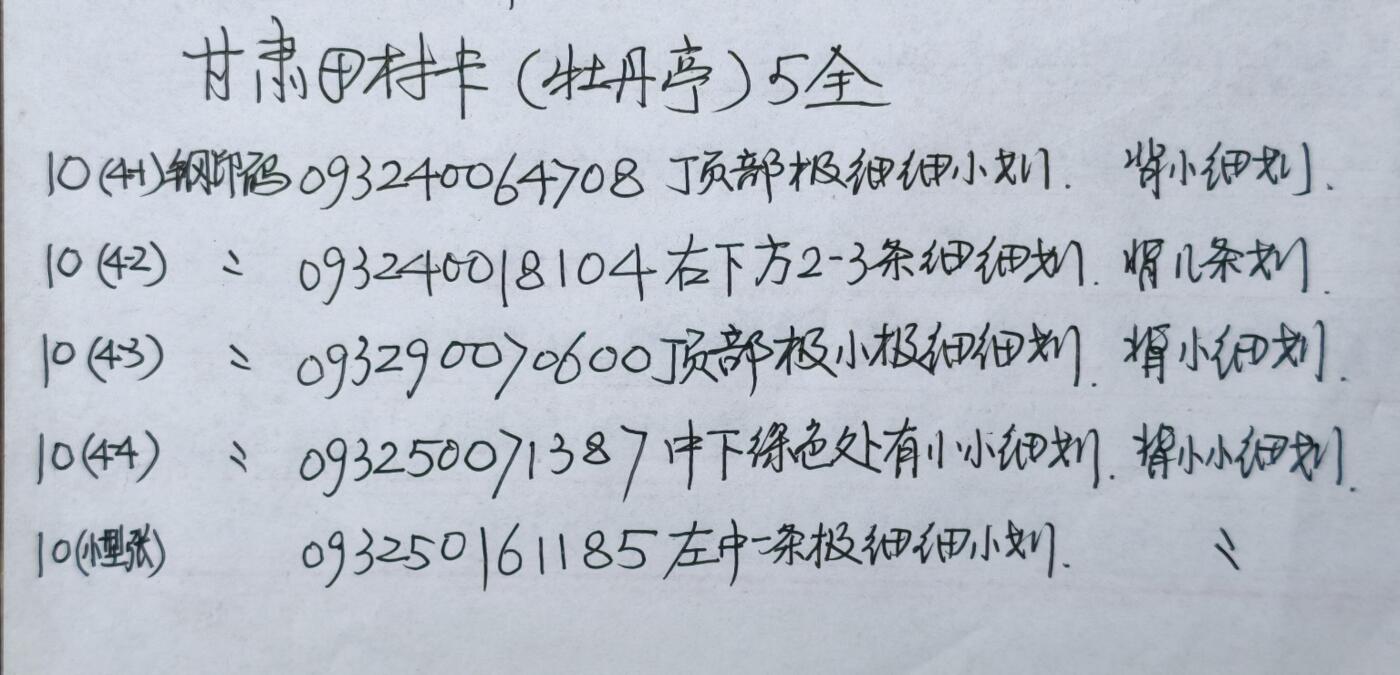 甘肃田村卡(牡丹亭)5全
10(4-1)钢印码 093240064708 顶部极细细小划. 背小细划.
10(4-2) 〃 093240018104 右下方2-3条细细划. 背几条划.
10(4-3) 〃 093290070600 顶部极小极细细划. 背小细划.
10(4-4) 〃 093250071387 中下绿色处有小小细划. 背小小细划.
10(小型张) 093250161185 左中一条极细细小划. 〃